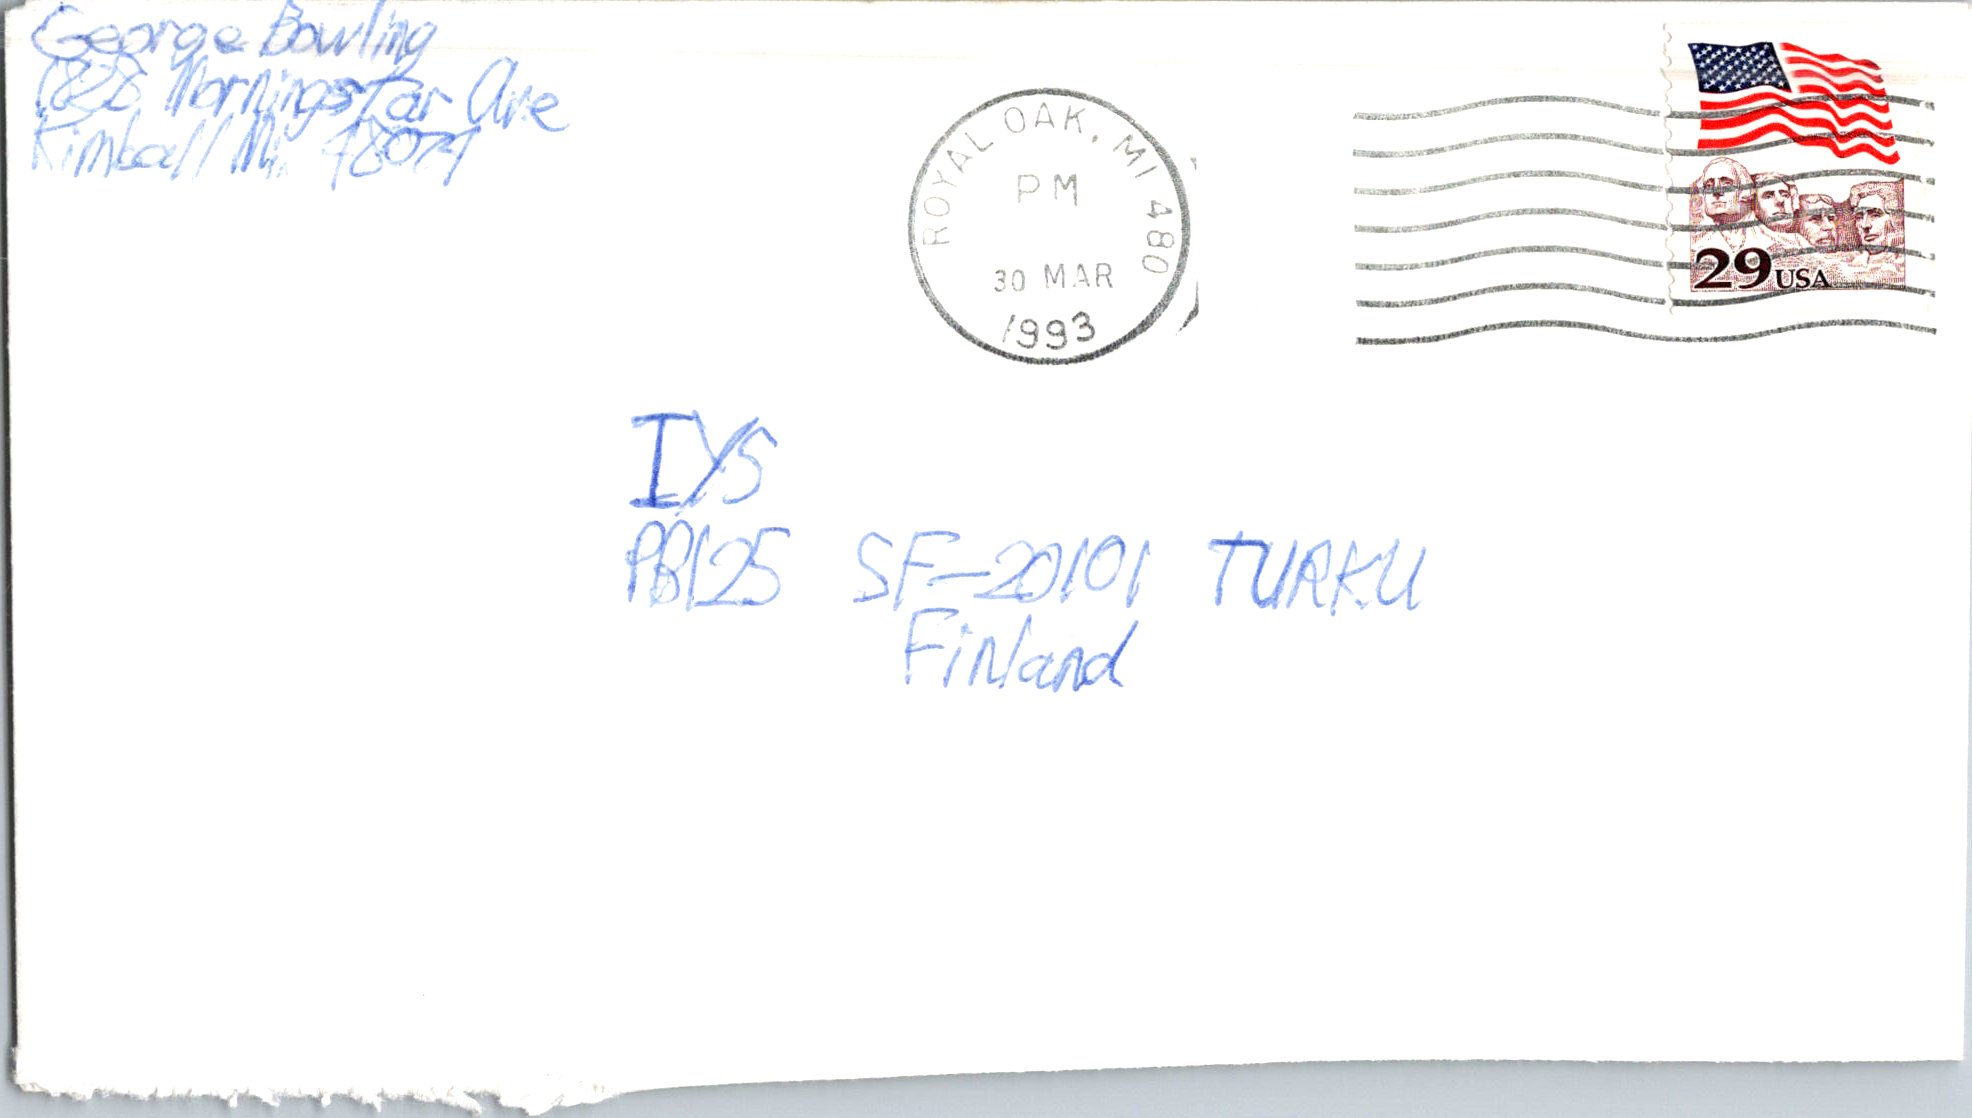 George Bowling
1828 Morningstar Ave
Kimball Mi. 48074
ROYAL OAK, MI 480
PM
30 MAR
1993
29 USA
IYS
PB125 SF-20101 TURKU
Finland